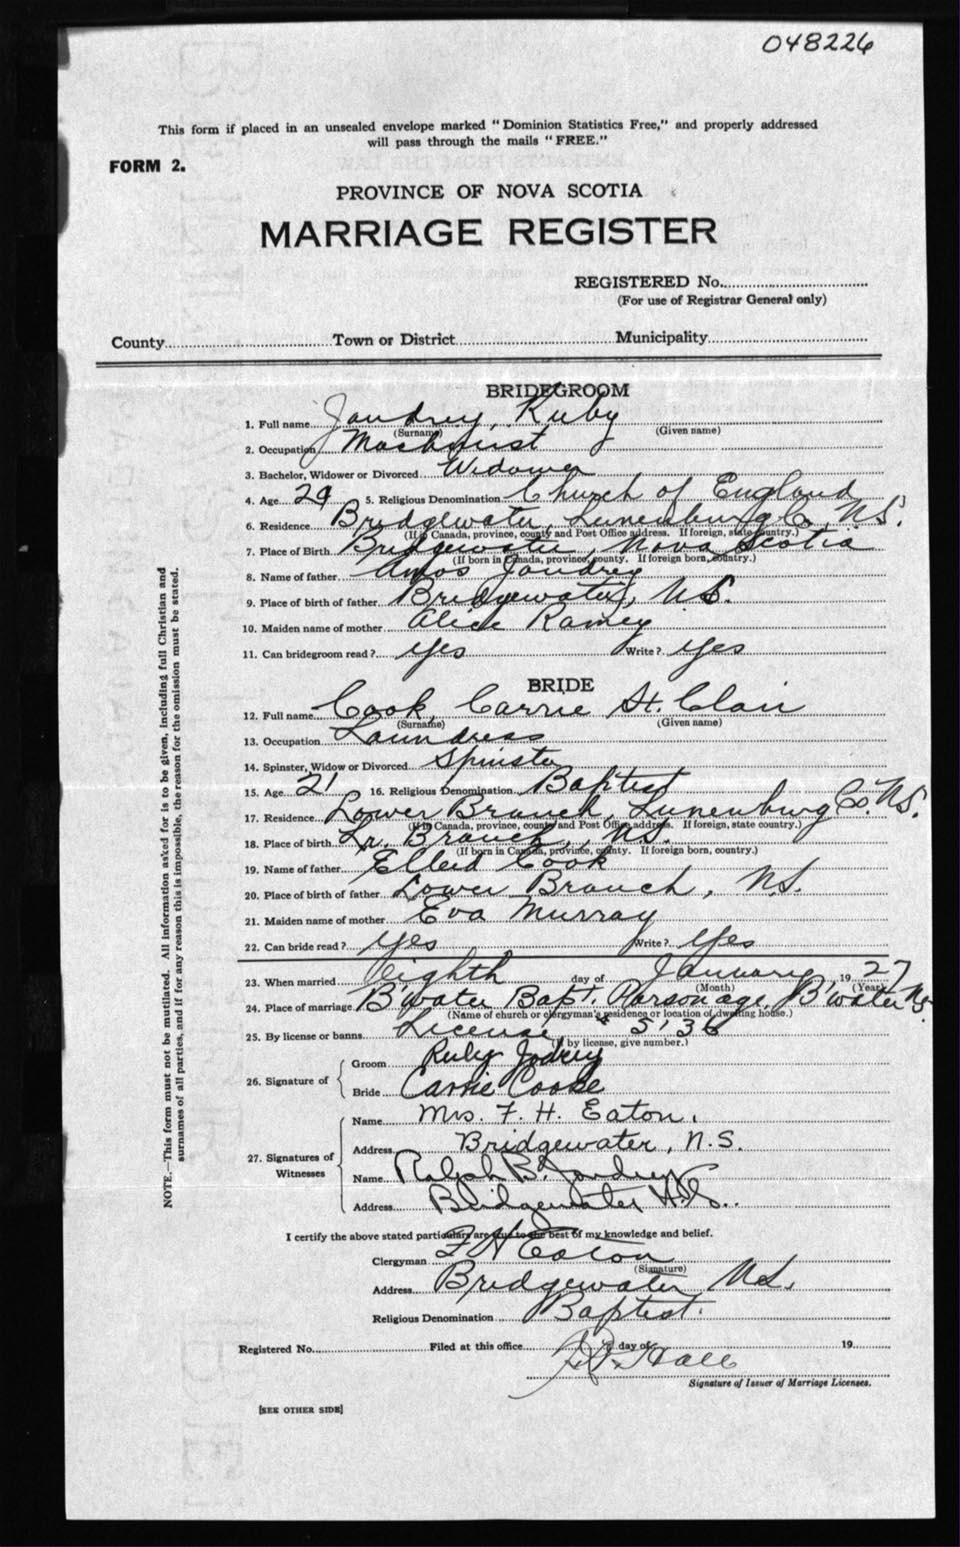 048226
This form if placed in an unsealed envelope marked "Dominion Statistics Free," and properly addressed
will pass through the mails "FREE."
FORM 2.
PROVINCE OF NOVA SCOTIA
MARRIAGE REGISTER
REGISTERED No.
(For use of Registrar General only)
County Town or District Municipality
BRIDEGROOM
1. Full name Jaudrey, Ruby
(Surname) (Given name)
2. Occupation Machinist
3. Bachelor, Widower or Divorced Widower
4. Age 29 5. Religious Denomination Church of England
6. Residence Bridgewater, Lunenburg Co. N.S.
(If in Canada, province, county and Post Office address. If foreign, state country.)
7. Place of Birth Bridgewater, Nova Scotia
(If born in Canada, province, county. If foreign born, country.)
8. Name of father Amos Jaudrey
9. Place of birth of father Bridgewater, N.S.
10. Maiden name of mother Alice Ramey
11. Can bridegroom read? yes Write? yes
BRIDE
12. Full name Cook, Carrie St. Clair
(Surname) (Given name)
13. Occupation Laundress
14. Spinster, Widow or Divorced Spinster
15. Age 21 16. Religious Denomination Baptist
17. Residence Lower Branch, Lunenburg Co. N.S.
(If in Canada, province, county and Post Office address. If foreign, state country.)
18. Place of birth Lr. Branch, N.S.
(If born in Canada, province, county. If foreign born, country.)
19. Name of father Cook
20. Place of birth of father Lower Branch, N.S.
21. Maiden name of mother Eva Murray
22. Can bride read? yes Write? yes
23. When married eighth day of January 1927
(Month) (Year)
24. Place of marriage B'water Bapt. Parsonage, B'water N.S.
(Name of church or clergyman's residence or location of dwelling house.)
25. By license or banns License # 5136
(If by license, give number.)
26. Signature of
Groom Ruby Jodrey
Bride Carrie Cooke
27. Signatures of Witnesses
Name Mrs. F. H. Eaton.
Address Bridgewater, N.S.
Name Ralph B. Jaudrey
Address Bridgewater N.S.
I certify the above stated particulars are true to the best of my knowledge and belief.
Clergyman F H Eaton
(Signature)
Address Bridgewater N.S.
Religious Denomination Baptist.
Registered No. Filed at this office day of 19
Hall
Signature of Issuer of Marriage Licenses.
[SEE OTHER SIDE]
NOTE.—This form must not be mutilated. All information asked for is to be given, including full Christian and
surnames of all parties, and if for any reason this is impossible, the reason for the omission must be stated.